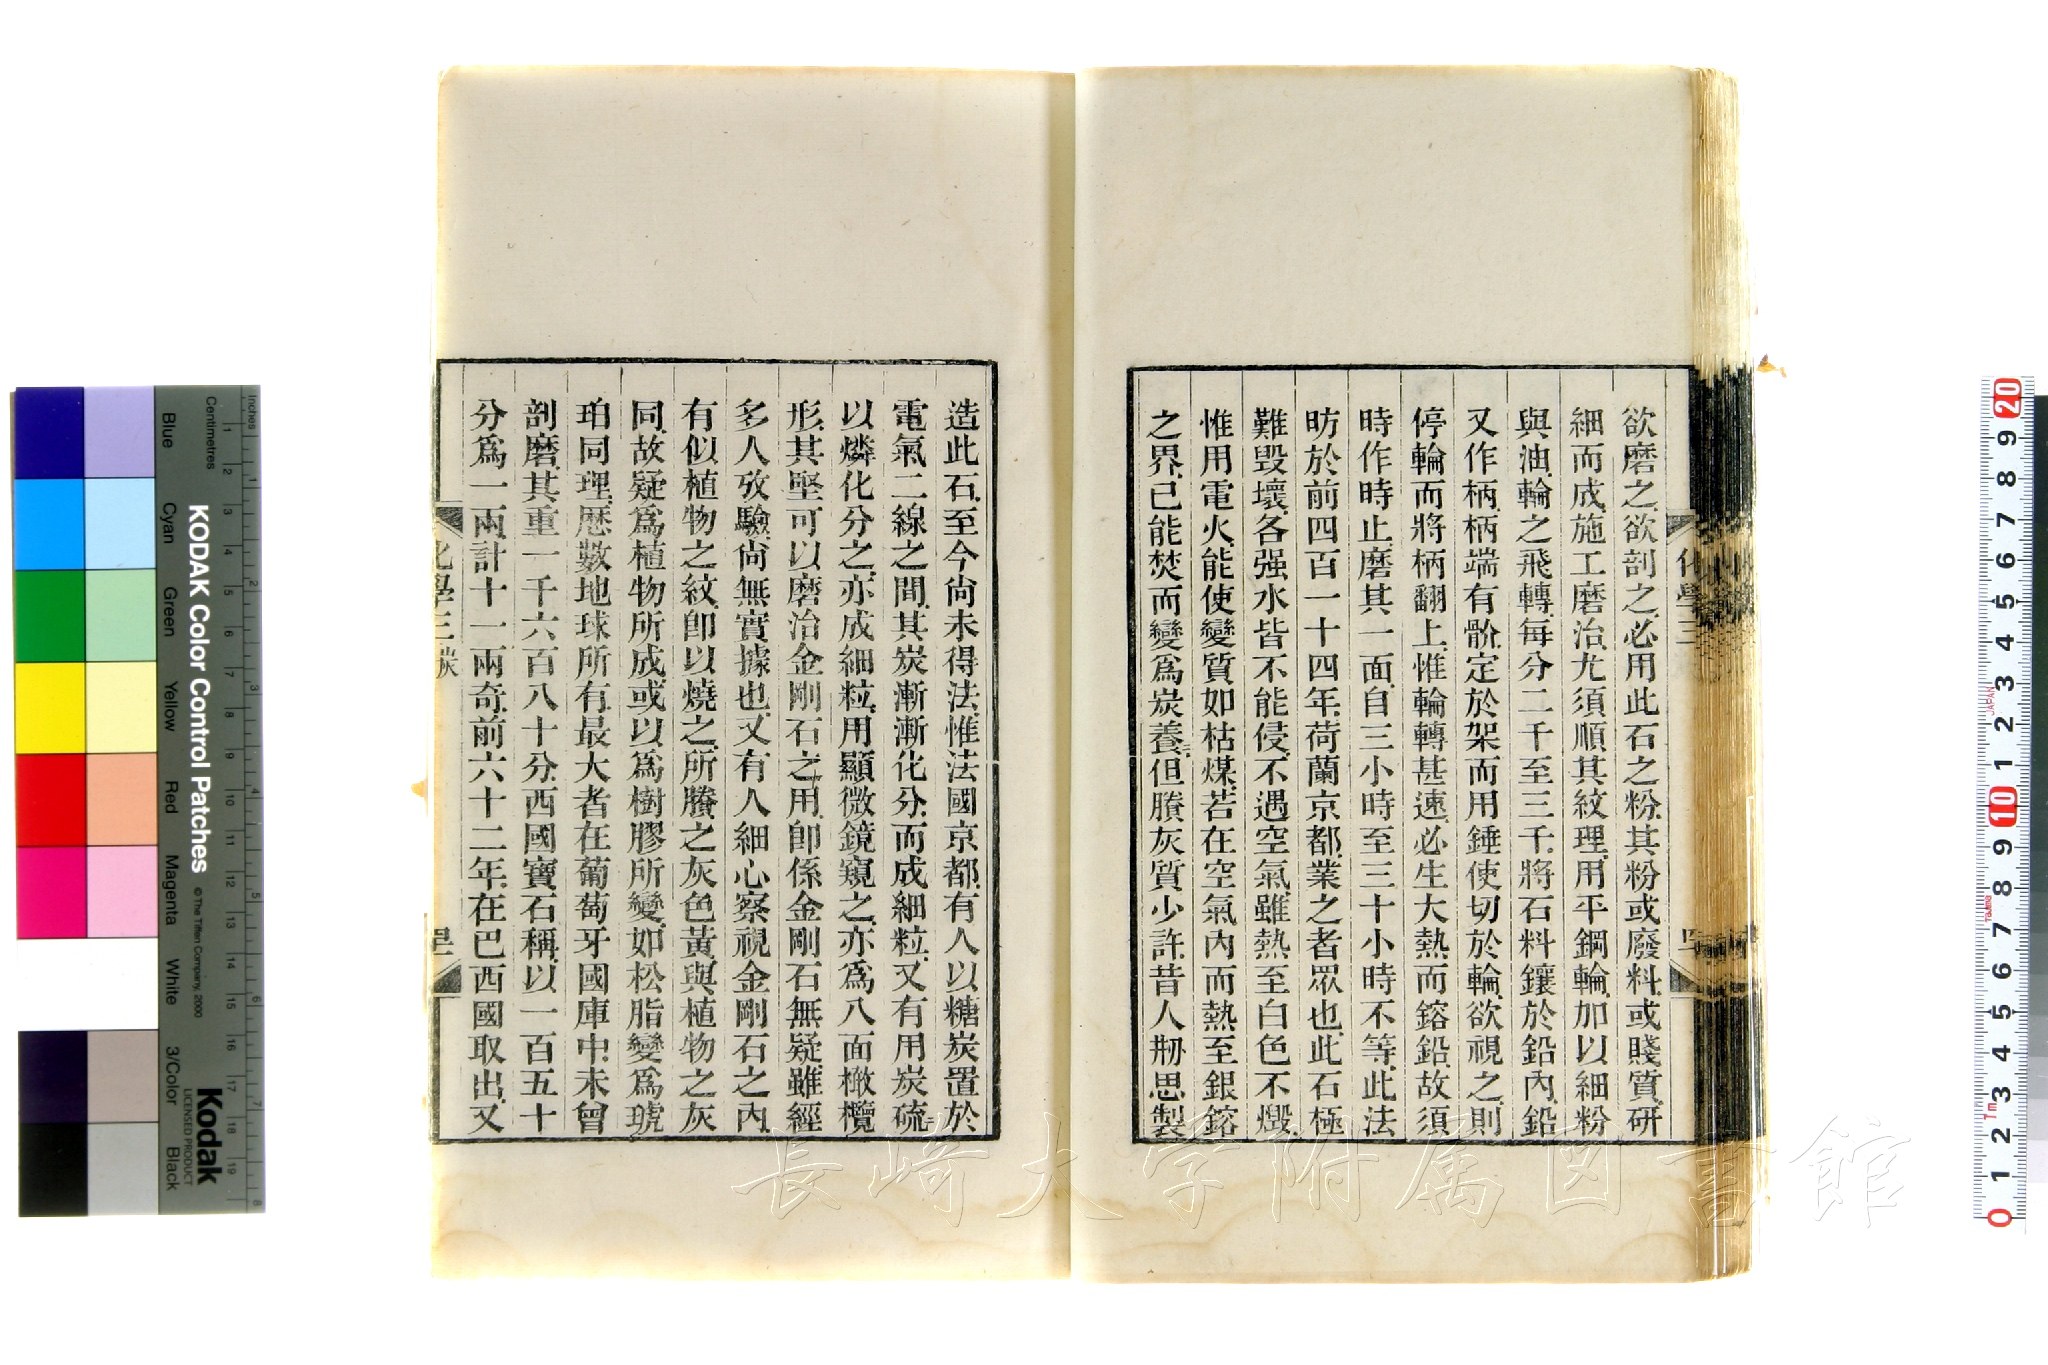 欲磨之欲剖之必用此石之粉其粉或廢料或賤質研
細而成施工磨治尤須順其紋理用平鋼輪加以細粉
與油輪之飛轉每分二千至三千將石料鑲於鉛內鉛
又作柄柄端有骱定於架而用錘使切於輪欲視之則
停輪而將柄翻上惟輪轉甚速必生大熱而鎔鉛故須
時作時止磨其一面自三小時至三十小時不等此法
昉於前四百一十四年荷蘭京都業之者眾也此石極
難毀壞各强水皆不能侵不遇空氣雖熱至白色不燬
惟用電火能使變質如枯煤若在空氣內而熱至銀鎔
之界已能焚而變爲炭養二但賸灰質少許昔人刱思製
化學三
造此石至今尚未得法惟法國京都有人以糖炭置於
電氣二線之間其炭漸漸化分而成細粒又有用炭硫二
以燐化分之亦成細粒用顯微鏡窺之亦爲八面橄欖
形其堅可以磨治金剛石之用卽係金剛石無疑雖經
多人攷驗尚無實據也又有人細心察視金剛石之內
有似植物之紋卽以燒之所賸之灰色黃與植物之灰
同故疑爲植物所成或以爲樹膠所變如松脂變爲琥
珀同理歷數地球所有最大者在葡萄牙國庫中未曾
剖磨其重一千六百八十分西國寶石稱以一百五十
分爲一兩計十一兩奇前六十二年在巴西國取出又
化學三 炭
KODAK Color Control Patches
© The Tiffen Company, 2000
Kodak
LICENSED PRODUCT
Inches
Centimetres
Blue
Cyan
Green
Yellow
Red
Magenta
White
3/Color
Black
長崎大学附属図書館
JAPAN